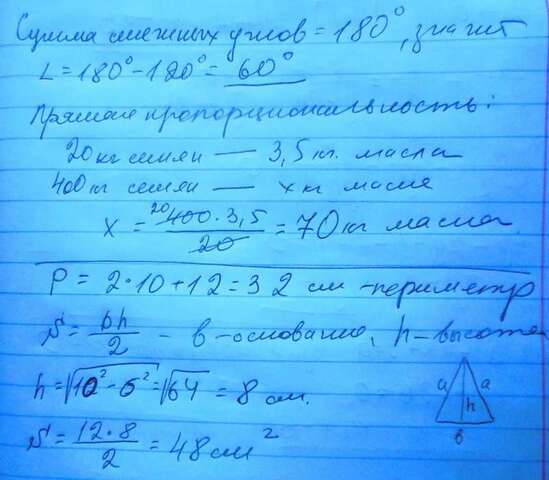 Сумма смежных углов = 180°, значит
L = 180° - 120° = 60°
Прямая пропорциональность:
20 кг семян — 3,5 кг. масла
400 кг семян — x кг масла
x = 20 400 · 3,5 / 20 = 70 кг масла.
P = 2·10 + 12 = 32 см - периметр
S = bh / 2 - b - основание, h - высота
h = √10² - 6² = √64 = 8 см.
a a
h
b
S = 12·8 / 2 = 48 см²